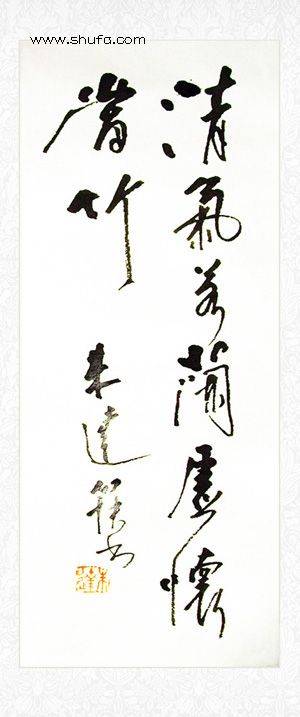 www.shufa.com
清氣若蘭虛懷
當竹
朱達書